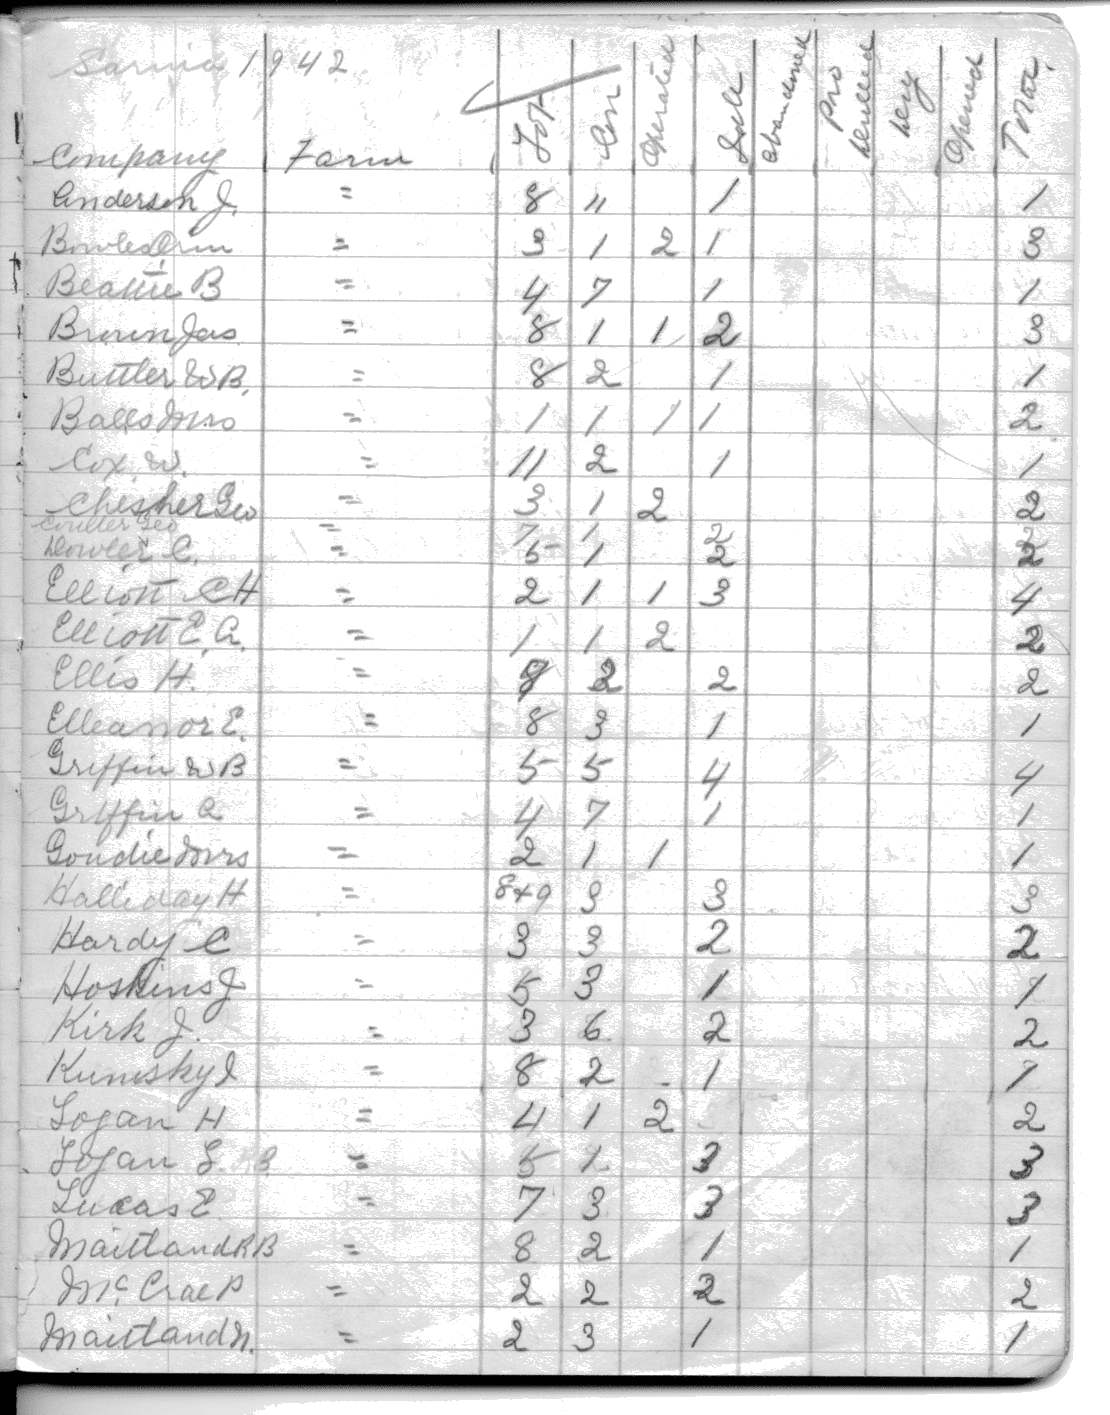 Sarnia 1942
Company Farm Lot Con Operated Idle abandoned Pro Drilled Dry Opened Total
Anderson J. " 8 11 1 1
Bowles Orm " 3 1 2 1 3
Beattie B " 4 7 1 1
Brown Jas " 8 1 1 2 3
Buttler W B. " 8 2 1 1
Balls Mrs " 1 1 1 1 2
Cox W. " 11 2 1 1
Chesher Geo " 3 1 2 2
Coulter Geo " 7 1 2 2
Dowler C. " 5 1 2 2
Elliott C H " 2 1 1 3 4
Elliott E. A. " 1 1 2 2
Ellis H. " 9 2 2 2
Elleanor E. " 8 3 1 1
Griffin W B " 5 5 4 4
Griffin A " 4 7 1 1
Goudie Mrs " 2 1 1 1
Halliday H " 8+9 3 3 3
Hardy C " 3 3 2 2
Hoskins J " 5 3 1 1
Kirk J. " 3 6 2 2
Kunisky I " 8 2 1 1
Logan H " 4 1 2 2
Logan S. B " 5 1 3 3
Lucas E " 7 3 3 3
Maittland R B " 8 2 1 1
Mc Crae P " 2 2 2 2
Maittland N. " 2 3 1 1